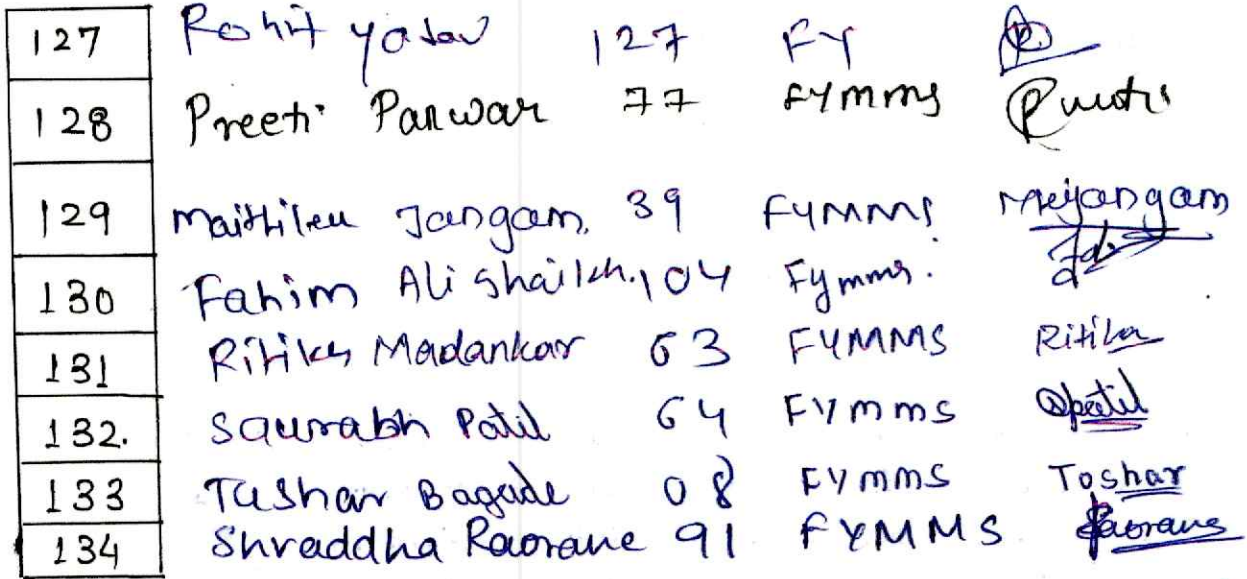 127 Rohit yadav 127 FY
128 Preeti Panwar 77 FYmms Preeti
129 Maithilee Jangam. 39 FYMMS Mejangam
130 Fahim Ali Shaikh. 104 Fymms.
131 Ritika Madankar 63 FYMMS Ritika
132. Saurabh Patil 64 FYmms Spatil
133 Tushar Bagade 08 FYmms Toshar
134 Shraddha Raorane 91 FYMMS Raorane